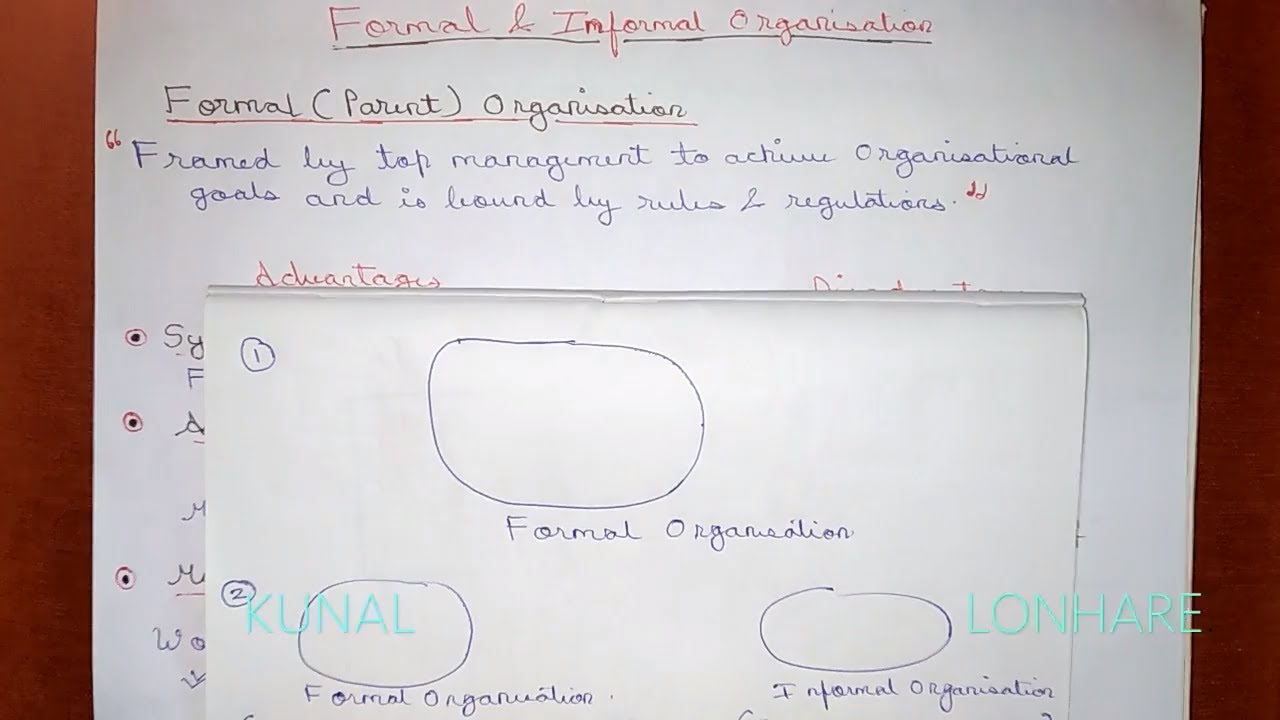 Formal & Informal Organisation
Formal (Parent) Organisation
"Framed by top management to achieve Organisational
goals and is bound by rules & regulations."
Advantages
Sy
F
A
M
Me
Wo
1
Formal Organisation
2
KUNAL LONHARE
Formal Organisation. Informal Organisation